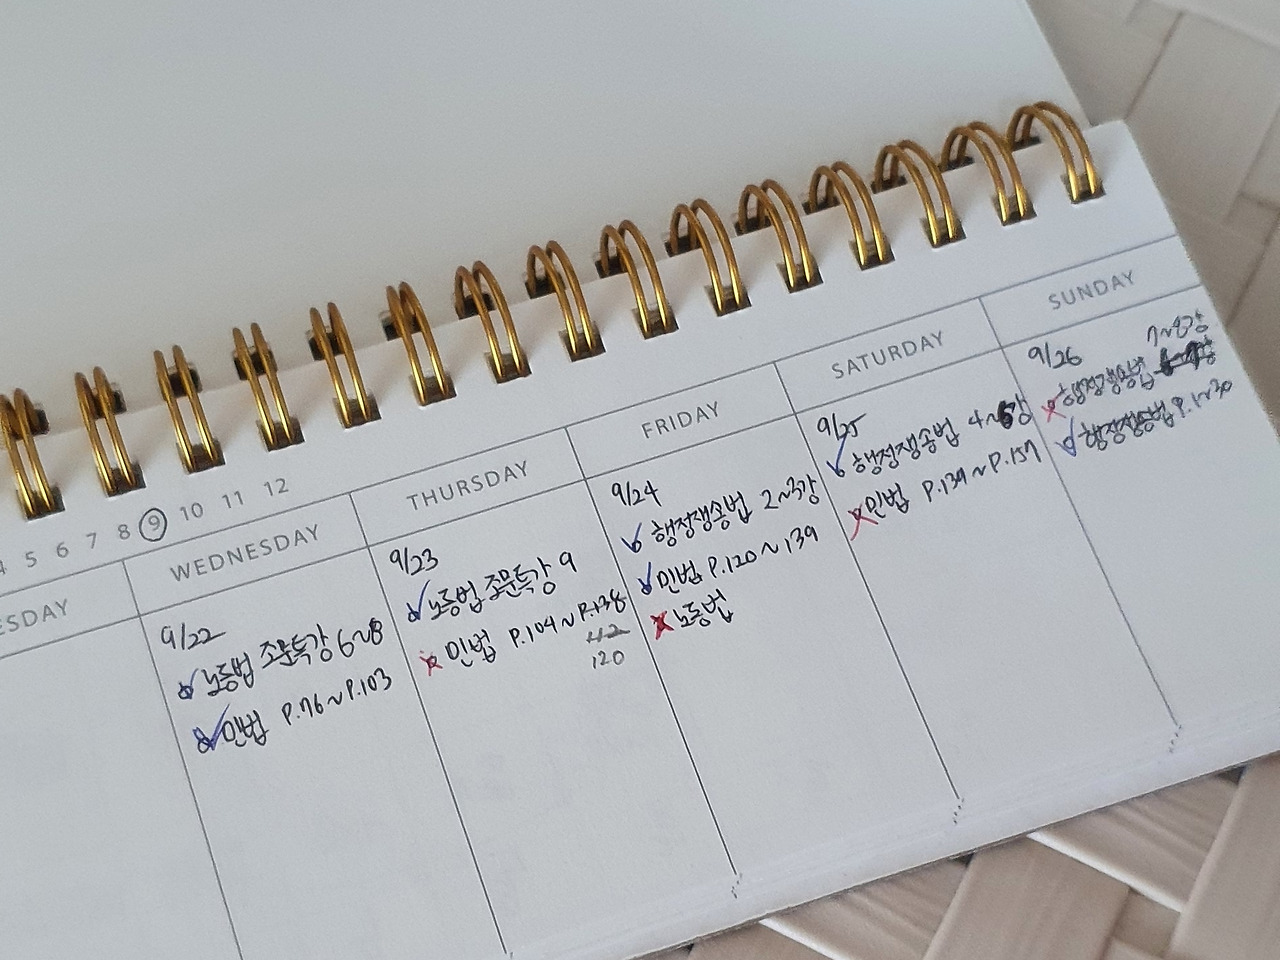 4 5 6 7 8 9 10 11 12
ESDAY
WEDNESDAY
9/22
노동법 조문특강 6~8
민법 P.76~P.103
THURSDAY
9/23
노동법 조문특강 9
민법 P.104~P.138
112
120
FRIDAY
9/24
행정쟁송법 2~3강
민법 P.120~139
노동법
SATURDAY
9/25
행정쟁송법 4~6강
민법 P.139~P.157
SUNDAY
9/26
행정쟁송법
행정쟁송법 P.1~30